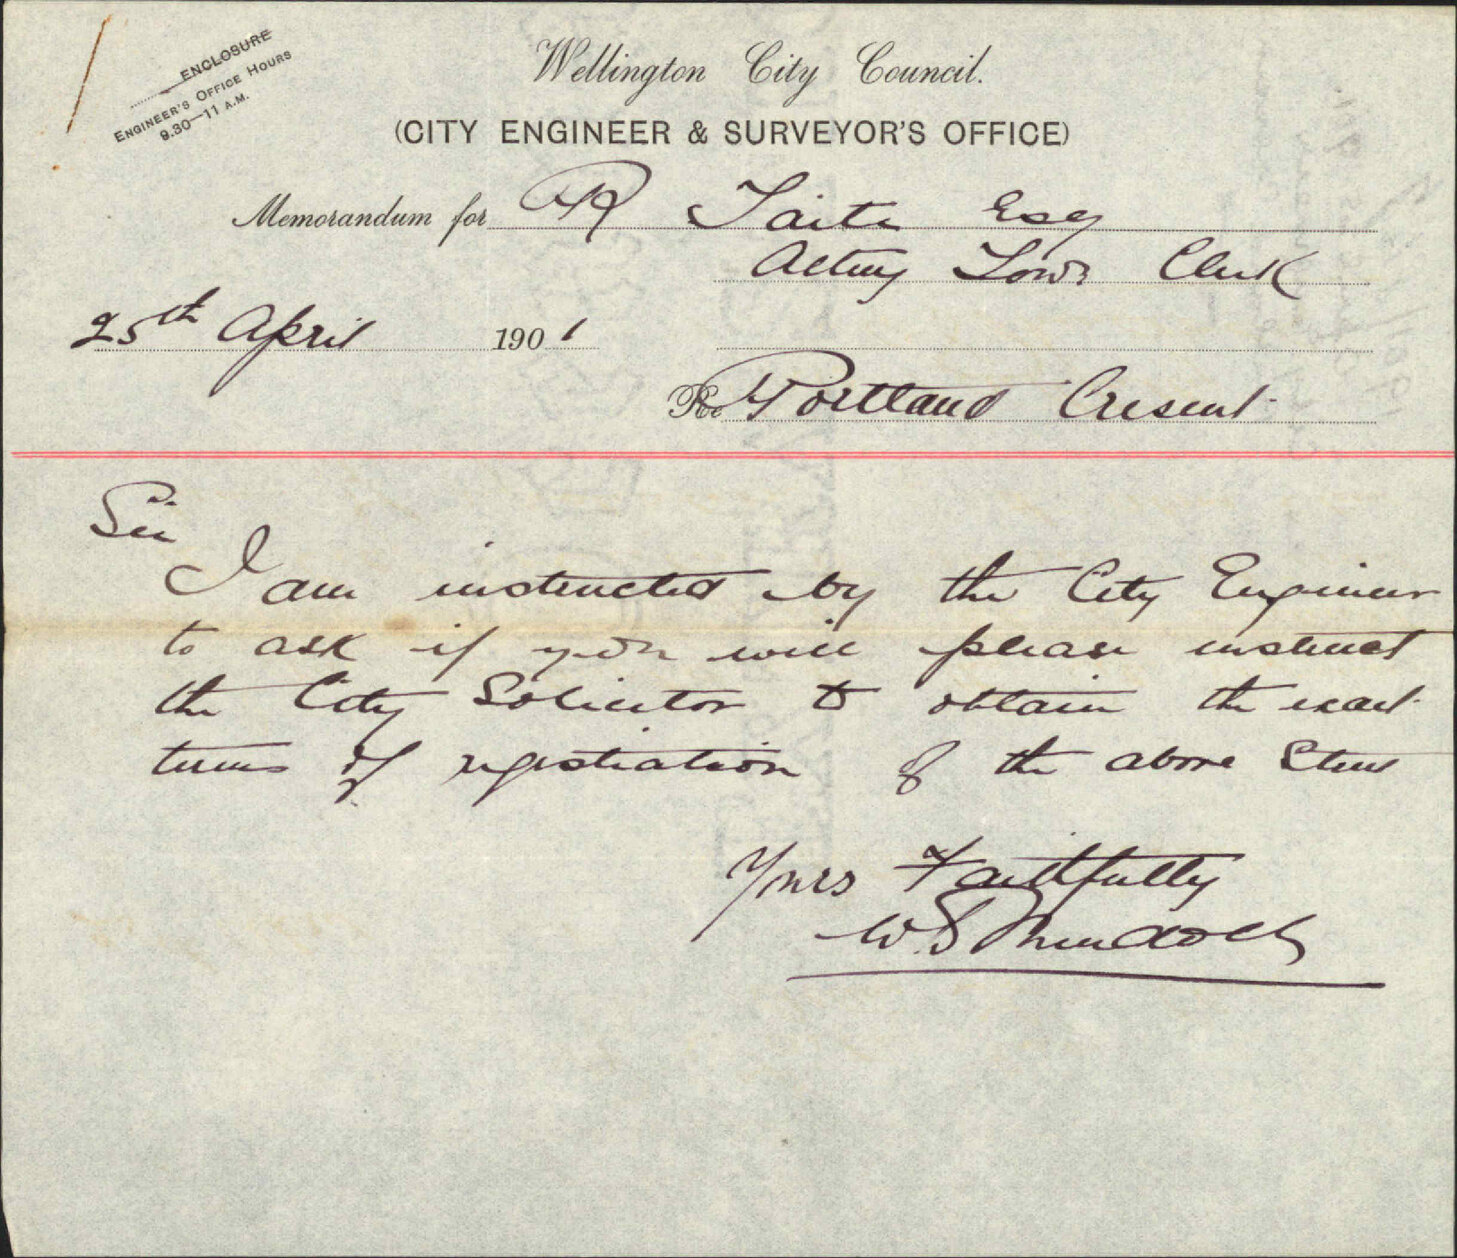 ENCLOSURE
ENGINEER'S OFFICE HOURS
9.30—11 A.M.
Wellington City Council.
(CITY ENGINEER & SURVEYOR'S OFFICE)
Memorandum for R Taite Esq
Acting Town Clerk
25th April 1901
Re Portland Cresent
Sir
I am instructed by the City Engineer
to ask if you will please instruct
the City Solicitor to obtain the exact
terms of registration of the above Street
Yours Faithfully
W S Murdoch